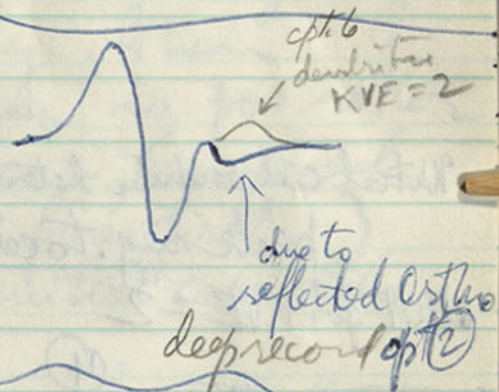 cpt. 6
dendrites
KVE = 2
due to
reflected Ortho
deep record cpt 2